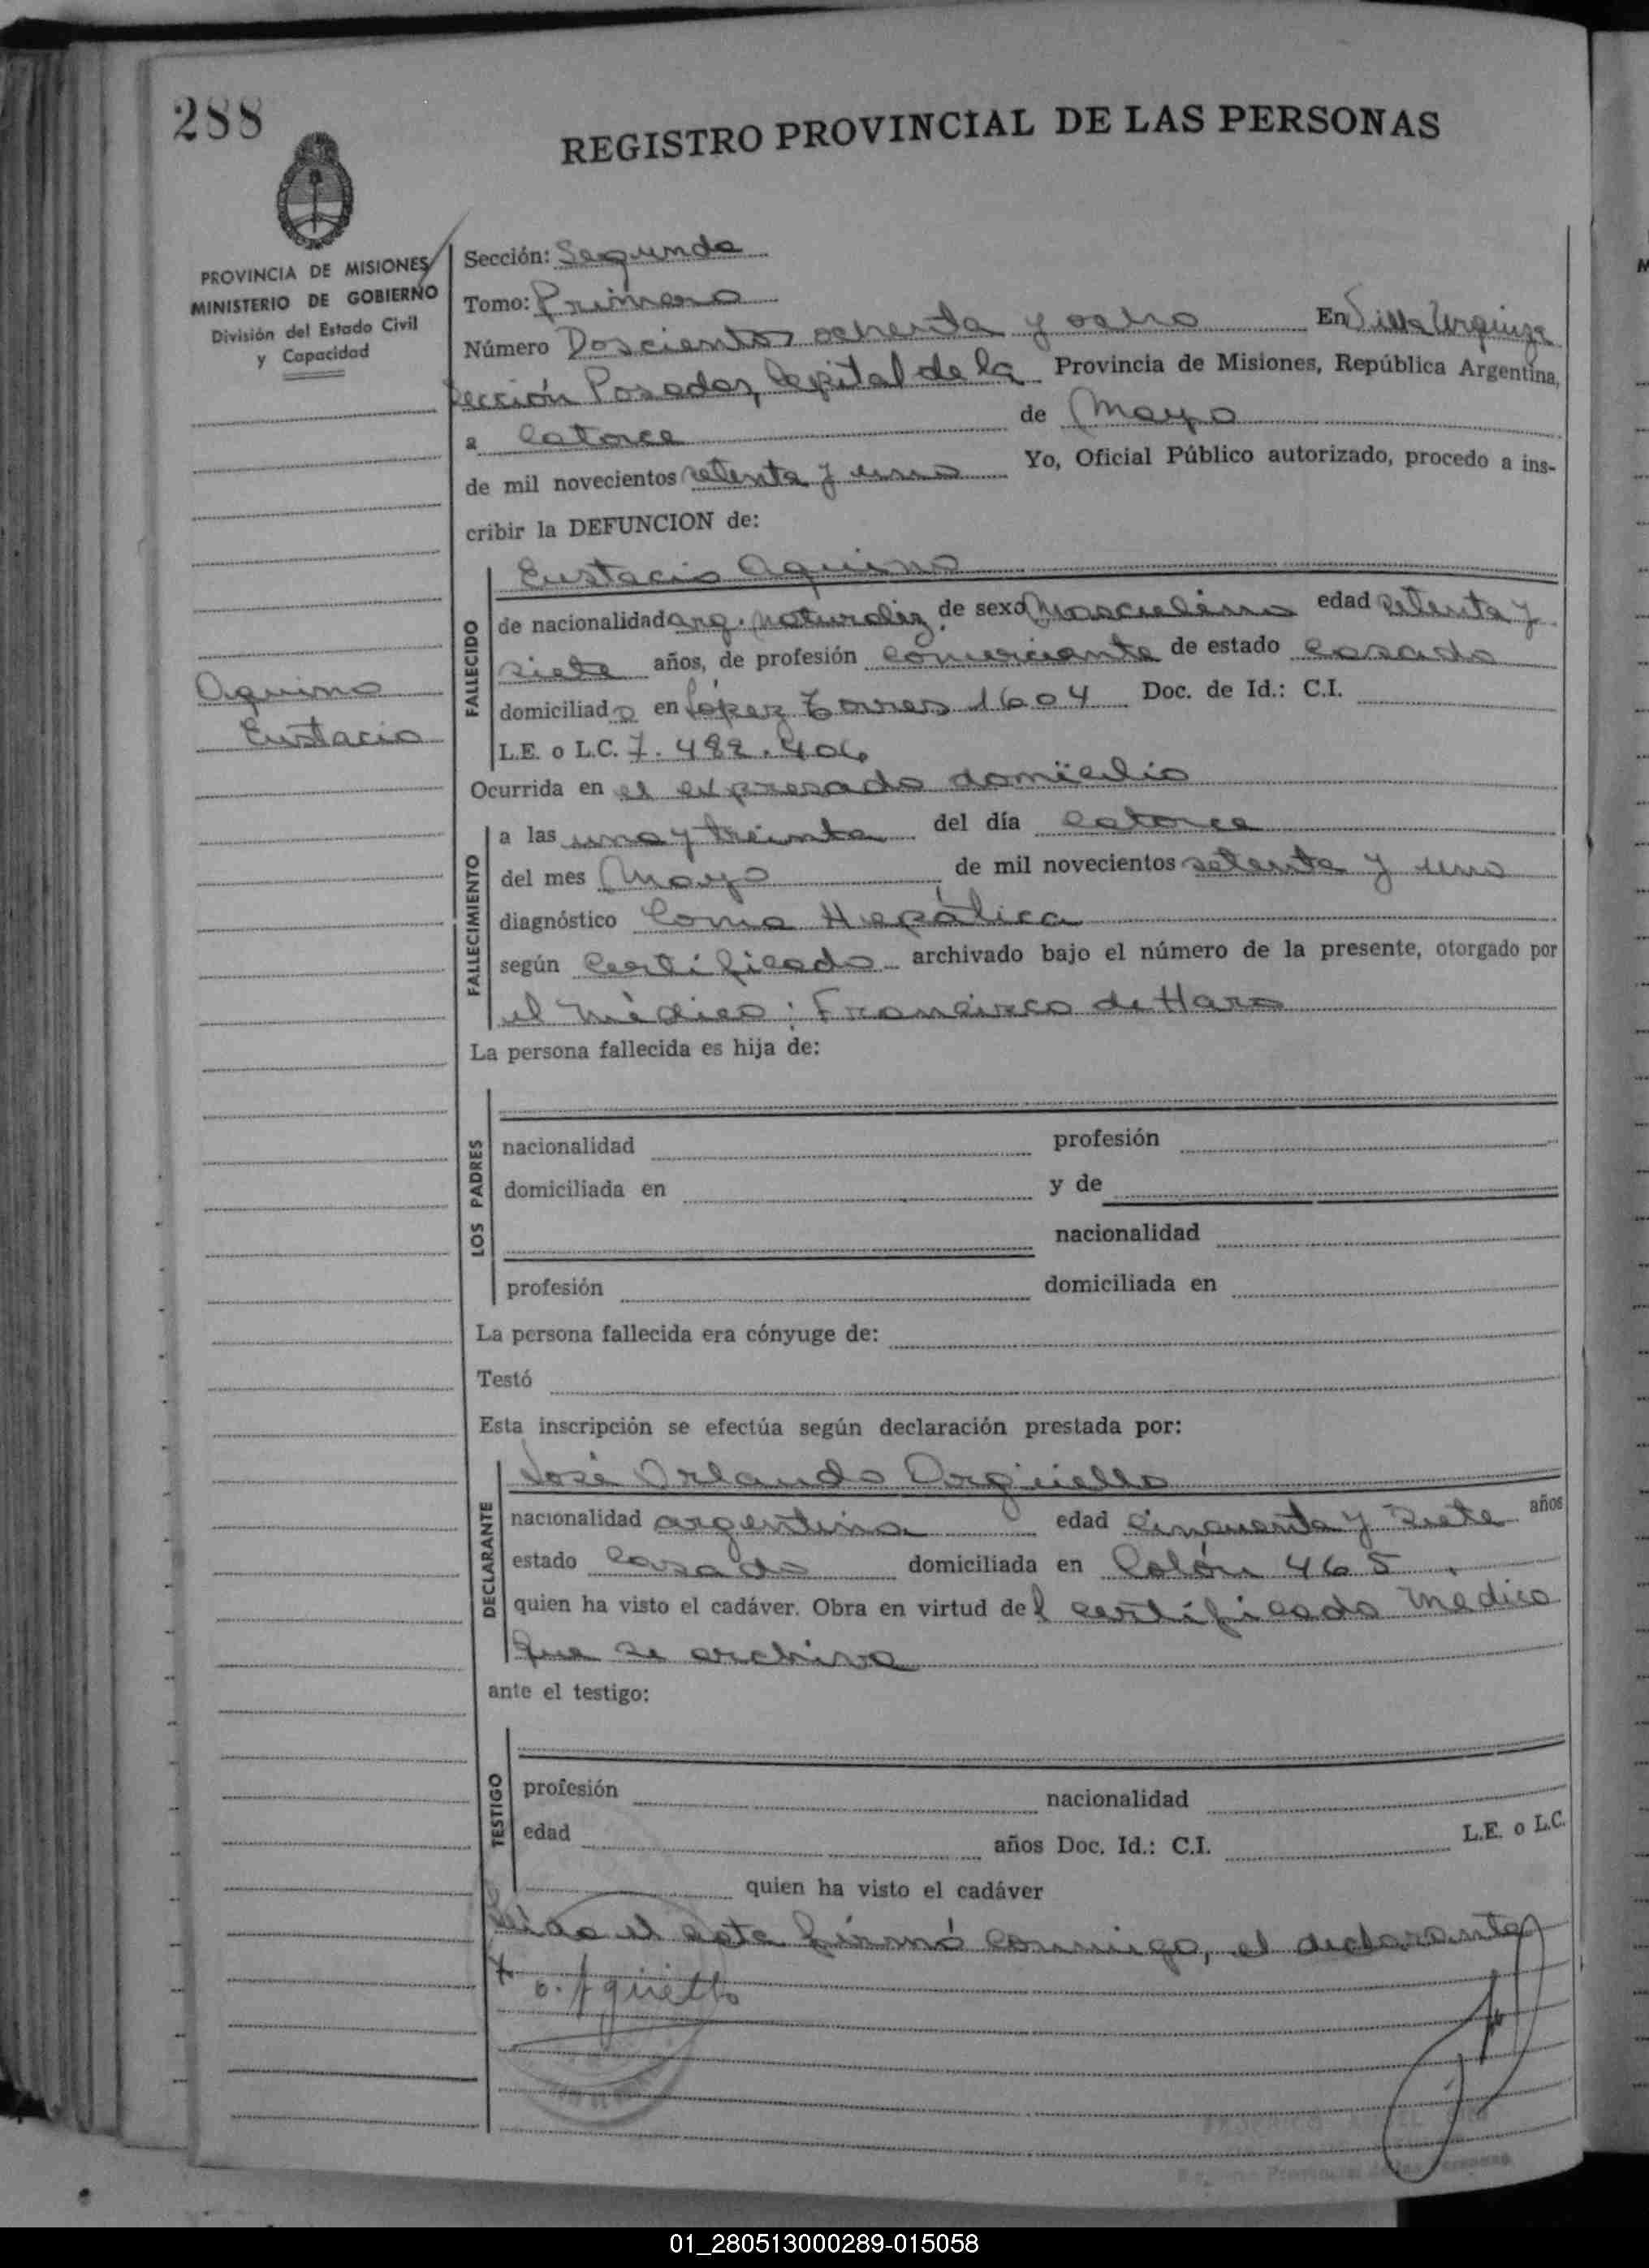 288
REGISTRO PROVINCIAL DE LAS PERSONAS
PROVINCIA DE MISIONES
MINISTERIO DE GOBIERNO
División del Estado Civil
y Capacidad
Sección: Segunda
Tomo: Primero
Número Doscientos ochenta y ocho En Villa Urquiza
Sección Posadas, Capital de la Provincia de Misiones, República Argentina,
a catorce de Mayo
de mil novecientos setenta y uno Yo, Oficial Público autorizado, procedo a ins-
cribir la DEFUNCION de:
Aquino
Eustacio
FALLECIDO
Eustacio Aquino
de nacionalidad arg. naturaliz. de sexo Masculino edad setenta y
siete años, de profesión comerciante de estado casado
domiciliado en López Torres 1604 Doc. de Id.: C.I.
L.E. o L.C. 7.482.406
Ocurrida en el expresado domicilio
FALLECIMIENTO
a las una y treinta del día catorce
del mes Mayo de mil novecientos setenta y uno
diagnóstico Coma Hepática
según Certificado archivado bajo el número de la presente, otorgado por
el médico: Francisco de Haro
La persona fallecida es hija de:
LOS PADRES
nacionalidad profesión
domiciliada en y de
nacionalidad
profesión domiciliada en
La persona fallecida era cónyuge de:
Testó
Esta inscripción se efectúa según declaración prestada por:
DECLARANTE
José Orlando Argüello
nacionalidad argentina edad cincuenta y siete años
estado casado domiciliada en Colón 465
quien ha visto el cadáver. Obra en virtud del certificado médico
que se archiva
ante el testigo:
TESTIGO
profesión nacionalidad
edad años Doc. Id.: C.I. L.E. o L.C.
quien ha visto el cadáver
Leída el acta firmó conmigo, el declarante
01_280513000289-015058